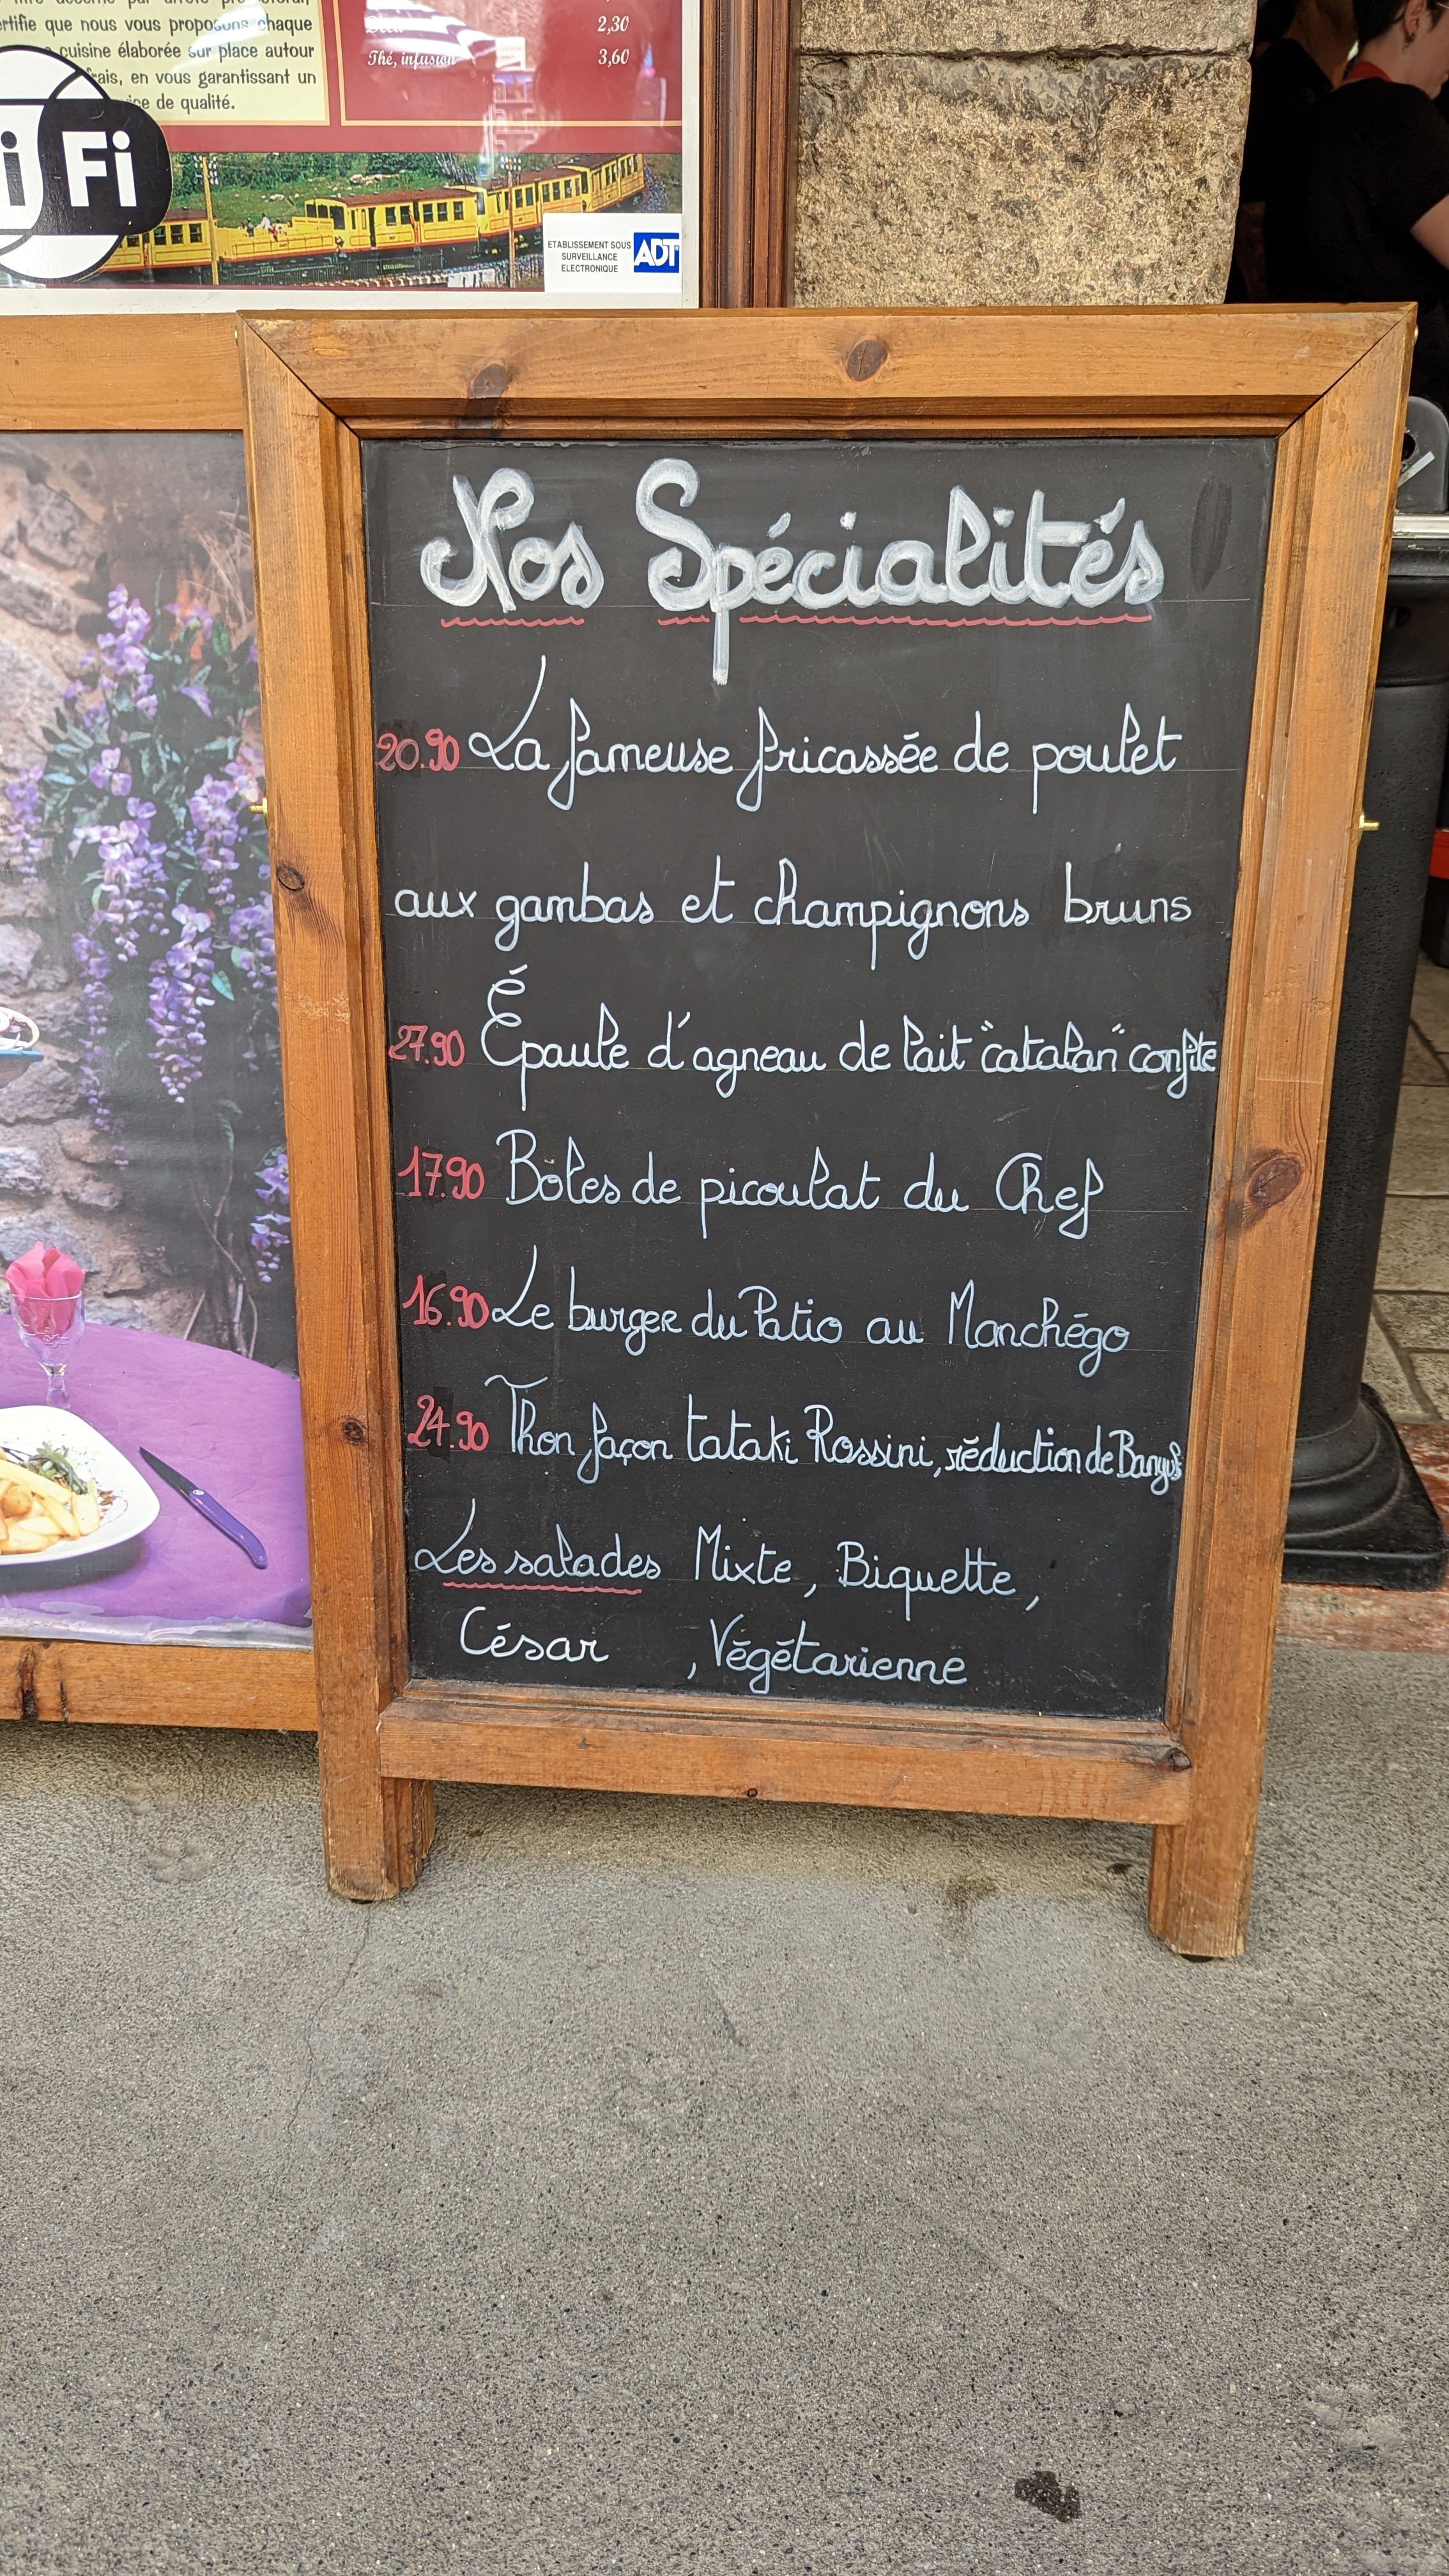 rtifie que nous vous proposons chaque
cuisine élaborée sur place autour
frais, en vous garantissant un
de qualité.
2,30
Thé, infusion 3,60
i Fi
ETABLISSEMENT SOUS
SURVEILLANCE
ELECTRONIQUE
ADT
Nos Spécialités
20.90 La fameuse fricassée de poulet
aux gambas et champignons bruns
27.90 Épaule d'agneau de lait "catalan" confite
17.90 Boles de picoulat du Chef
16.90 Le burger du Patio au Manchégo
24.90 Thon façon tataki Rossini, réduction de Banyuls
Les salades Mixte, Biquette,
César , Végétarienne